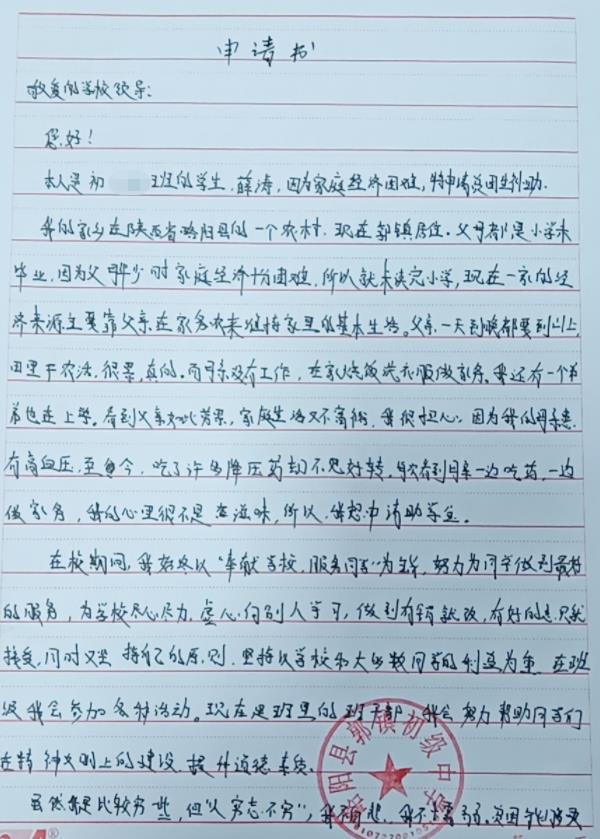 申请书
敬爱的学校领导:
您好!
本人是初 班的学生,薛涛,因为家庭经济困难,特申请贫困生补助.
我的家乡在陕西省略阳县的一个农村.现在郭镇居住.父母都是小学未
毕业,因为父母少时家庭经济十分困难,所以就未读完小学,现在一家的经
济来源主要靠父亲在家务农来维持家里的基本生活.父亲一天到晚都要到山上,
田里干农活.很累,真的.而母亲没有工作,在家烧饭洗衣服做家务.我还有一个弟
弟也在上学.看到父亲如此劳累,家庭生活又不富裕,我很担心.因为我的母亲患
有高血压,至今,吃了许多降压药却不见好转.每次看到母亲一边吃药,一边
做家务,我的心里很不是滋味,所以,我想申请助学生.
在校期间,我始终以"奉献学校,服务同学"为,努力为同学做到最好
的服务,为学校尽心尽力.虚心向别人学习,做到有错就改,有好的意见就
接受,同时又坚持自己的原则.坚持以学校和大多数同学的利益为重.在班
级我会参加各种活动.现在是班里的班干部,我会努力帮助同学们
在精神文明上的建设.提升道德素质.
虽然家是比较穷些,但"人穷志不穷",我不自悲,我不
略阳县郭镇初级中学